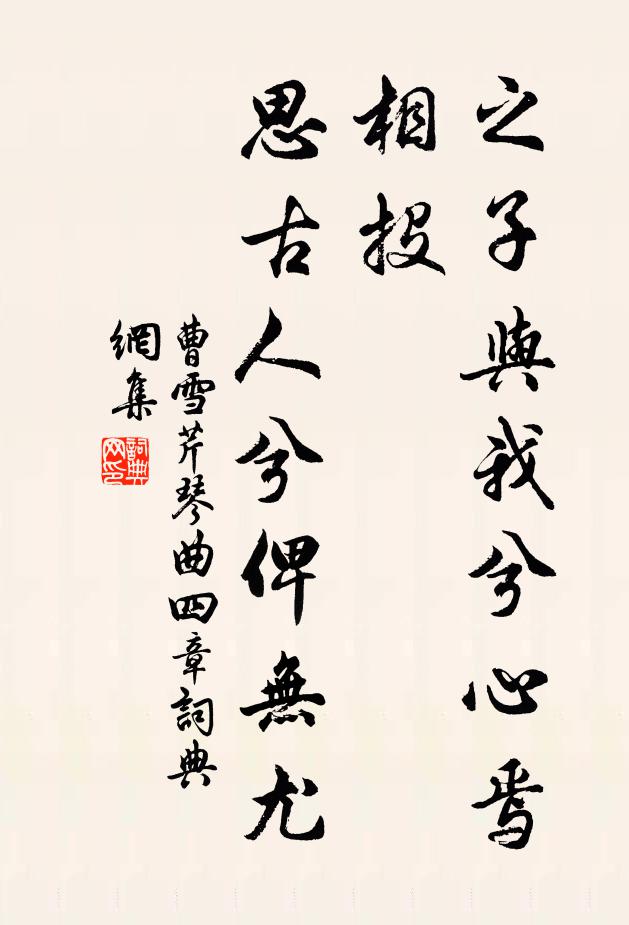 之子與我兮心焉
相投
思古人兮俾無尤
曹雪芹琴曲四章詞典
網集
詞典網印